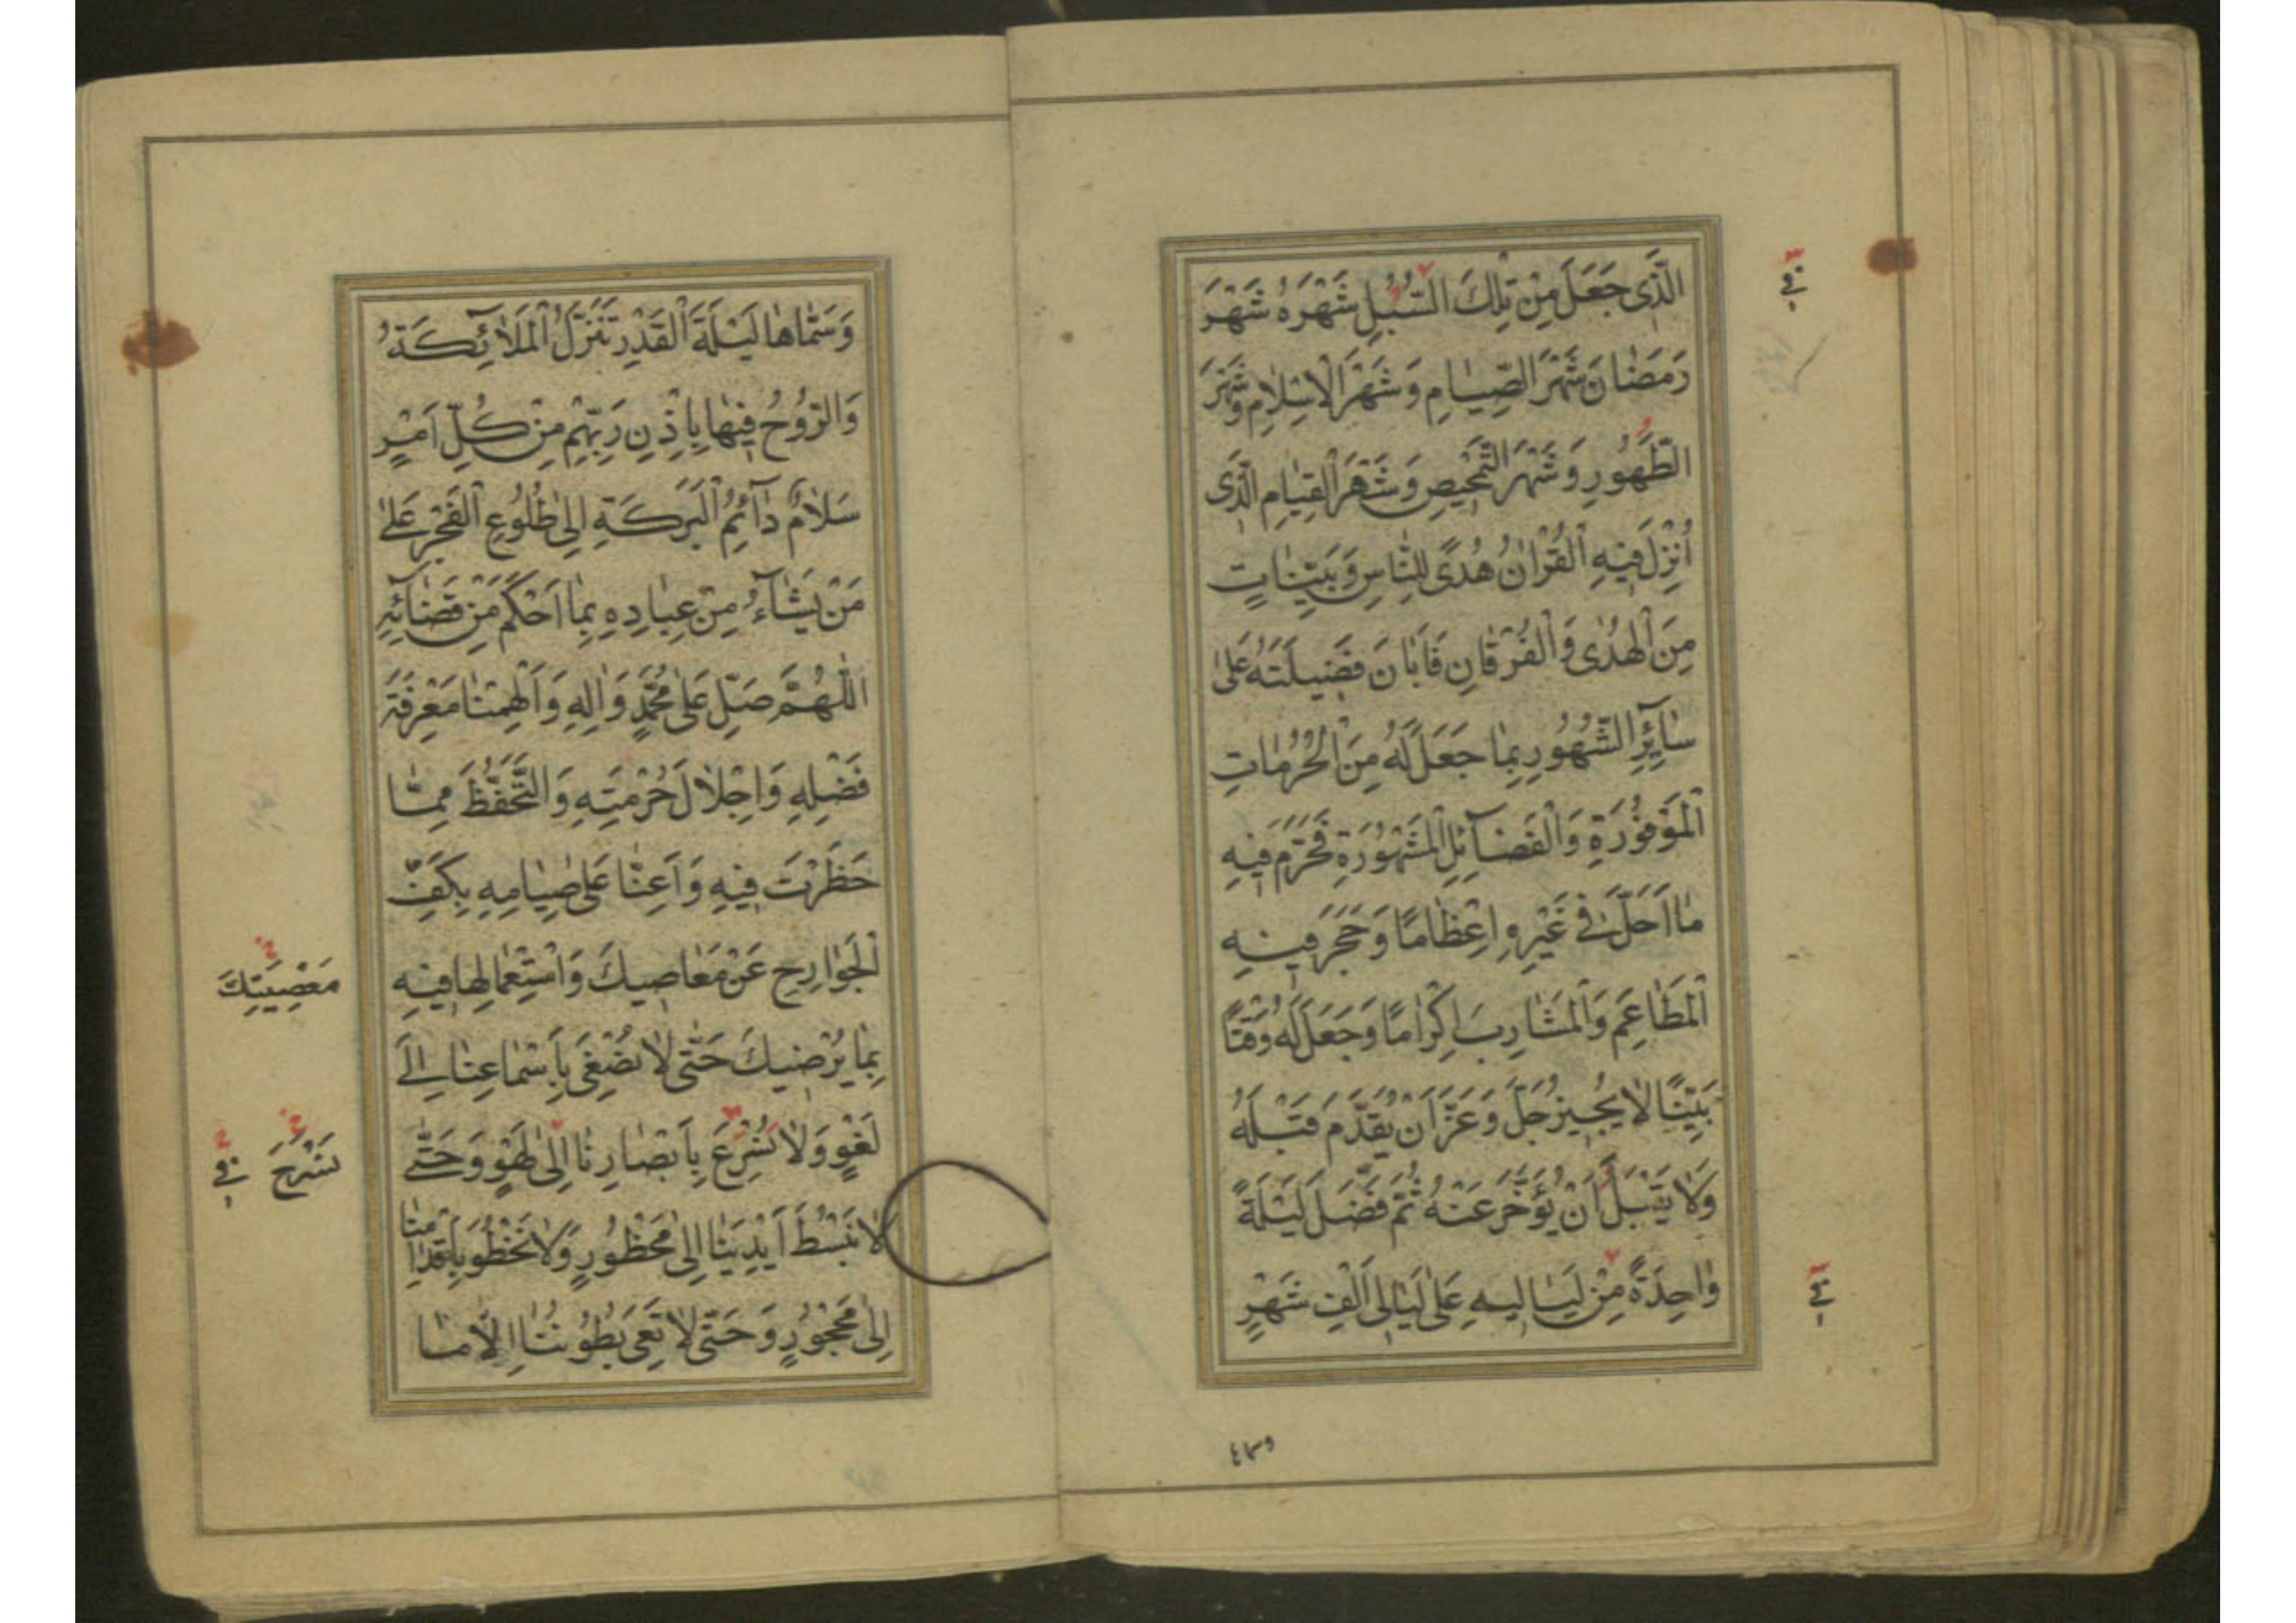 الَّذی جَعَلَ مِنْ تِلْكَ السُّبُلِ شَهْرَهُ شَهْرَ
رَمَضٰانَ شَهْرَ الصِّیٰامِ وَ شَهْرَ الْاِسْلٰامِ وَ شَهْرَ
الطَّهُورِ وَ شَهْرَ التَّمْحیصِ وَ شَهْرَ الْقِیٰامِ الَّذی
اُنْزِلَ فیهِ الْقُرْاٰنُ هُدًی لِلنّٰاسِ وَ بَیِّنٰاتٍ
مِنَ الْهُدٰی وَ الْفُرْقٰانِ فَاَبٰانَ فَضیلَتَهُ عَلیٰ
سٰآئِرِ الشُّهُورِ بِمٰا جَعَلَ لَهُ مِنَ الْحُرُمٰاتِ
الْمَوْفُورَةِ وَ الْفَضٰآئِلِ الْمَشْهُورَةِ فَحَرَّمَ فیهِ
مٰا اَحَلَّ فی غَیْرِهِ اِعْظٰامًا وَ حَجَرَ فیهِ
الْمَطٰاعِمَ وَ الْمَشٰارِبَ اِكْرٰامًا وَ جَعَلَ لَهُ وَقْتًا
بَیِّنًا لٰا یُجیزُ جَلَّ وَ عَزَّ اَنْ یُقَدَّمَ قَبْلَهُ
وَ لٰا یَقْبَلُ اَنْ یُؤَخَّرَ عَنْهُ ثُمَّ فَضَّلَ لَیْلَةً
وٰاحِدَةً مِنْ لَیٰالیهِ عَلیٰ لَیٰالی اَلْفِ شَهْرٍ
فی
فی
وسماء
وَ سَمّٰاهٰا لَیْلَةَ الْقَدْرِ تَنَزَّلُ الْمَلٰآئِكَةُ
وَ الرُّوحُ فیهٰا بِاِذْنِ رَبِّهِمْ مِنْ كُلِّ اَمْرٍ
سَلٰامٌ دٰآئِمُ الْبَرَكَةِ اِلیٰ طُلُوعِ الْفَجْرِ عَلیٰ
مَنْ یَشٰآءُ مِنْ عِبٰادِهِ بِمٰا اَحْكَمَ مِنْ قَضٰآئِهِ
اَللّٰهُمَّ صَلِّ عَلیٰ مُحَمَّدٍ وَ اٰلِهِ وَ اَلْهِمْنٰا مَعْرِفَةَ
فَضْلِهِ وَ اِجْلٰالَ حُرْمَتِهِ وَ التَّحَفُّظَ مِمّٰا
حَظَرْتَ فیهِ وَ اَعِنّٰا عَلیٰ صِیٰامِهِ بِكَفِّ
الْجَوٰارِحِ عَنْ مَعٰاصیكَ وَ اسْتِعْمٰالِهٰا فیهِ
بِمٰا یُرْضیكَ حَتّیٰ لٰا نُصْغِیَ بِاَسْمٰاعِنٰا اِلیٰ
لَغْوٍ وَ لٰا نُسْرِعَ بِاَبْصٰارِنٰا اِلیٰ لَهْوٍ وَ حَتّیٰ
لٰا نَبْسُطَ اَیْدِیَنٰا اِلیٰ مَحْظُورٍ وَ لٰا نَخْطُوَ بِاَقْدٰامِنٰا
اِلیٰ مَحْجُورٍ وَ حَتّیٰ لٰا تَعِیَ بُطُونُنٰا اِلّٰا مٰا
مَعْصِیَتِكَ
نَسْرَحَ فی